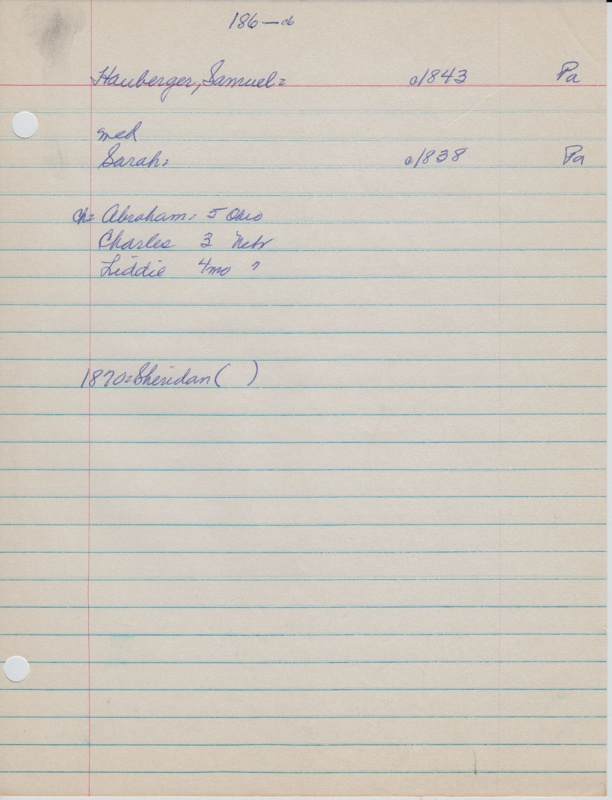 186—
Hauberger, Samuel= c1843 Pa
med
Sarah= c1838 Pa
ch= Abraham= 5 Ohio
Charles 3 Nebr
Liddie 4mo ?
1870=Sheridan ( )